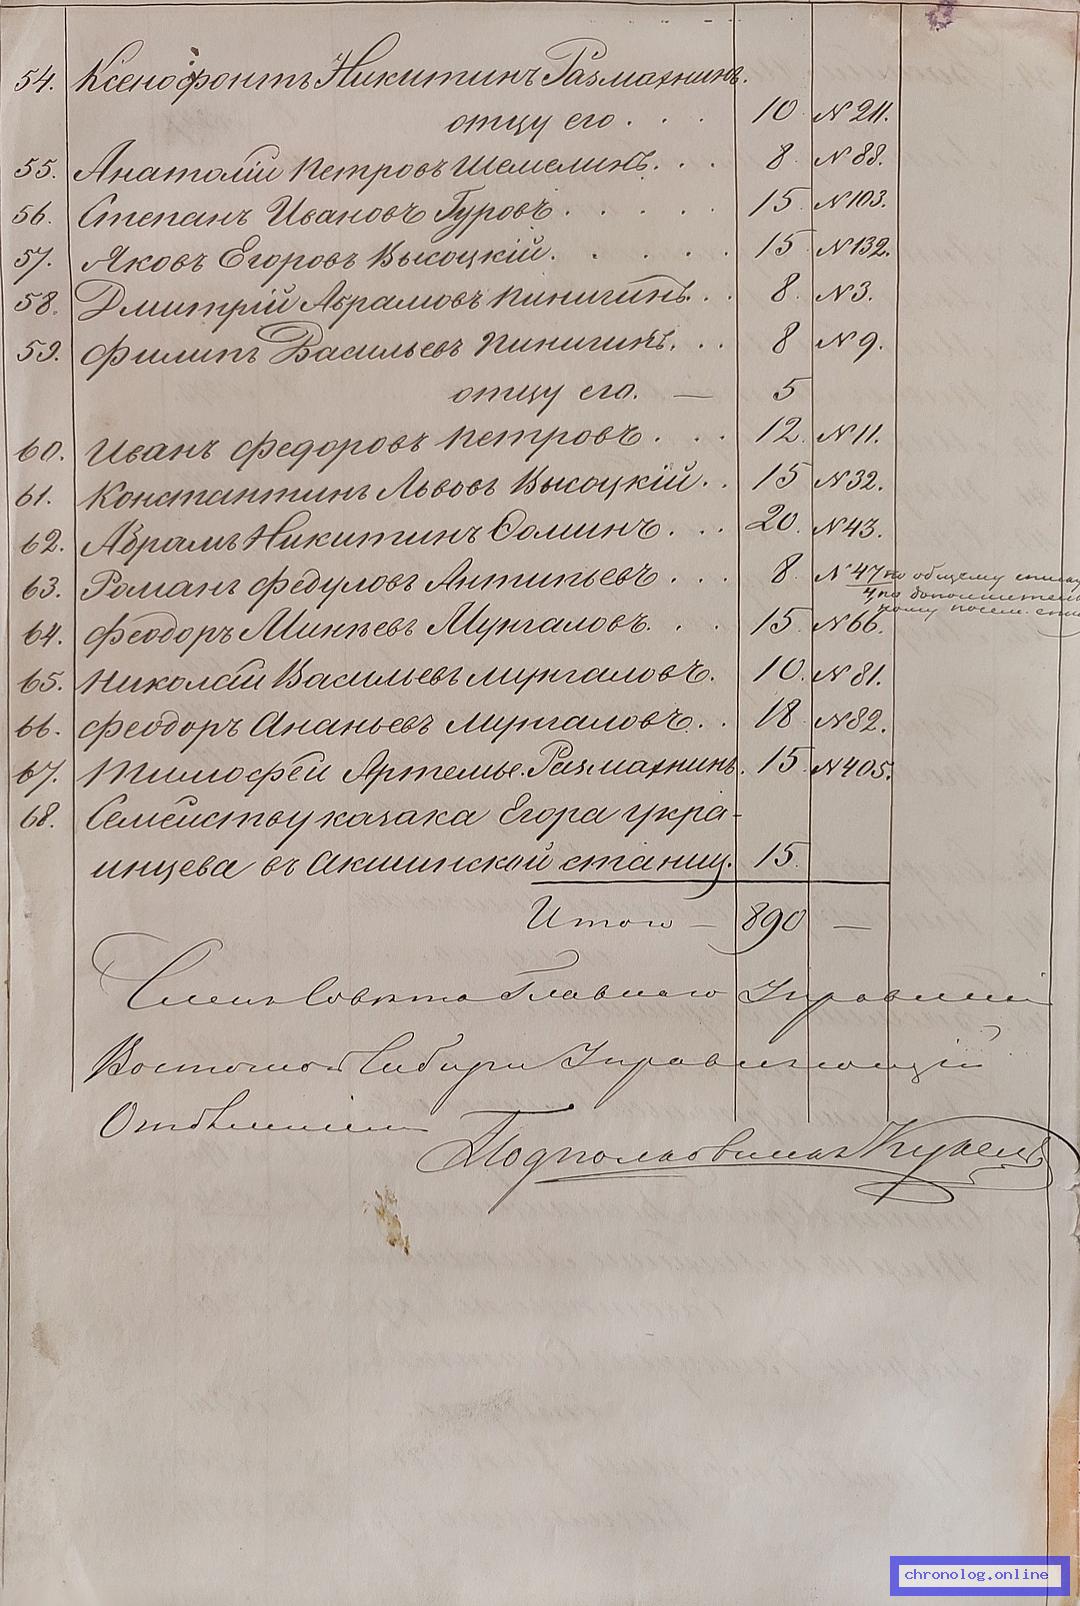 54. Ксенофонтъ Никитинъ Размахнинъ.
отцу его . . . 10 №211.
55. Анатолій Петровъ Шемелинъ. . . 8 №88.
56. Степанъ Ивановъ Гуровъ . . . . . 15 №103.
57. Яковъ Егоровъ Высоцкій. . . . . 15 №132.
58. Дмитрій Абрамовъ Пинигинъ. . . 8 №3.
59. Филипъ Васильевъ Пинигинъ. . . 8 №9.
отцу его. — 5
60. Иванъ Федоровъ Петровъ . . . 12 №11.
61. Константинъ Львовъ Высоцкій . . 15 №32.
62. Абрамъ Никитинъ Ѳоминъ . . . 20 №43.
63. Романъ Федуловъ Антипьевъ . . . 8 №47 по общему списку
4 по дополнитель
ному посем. спис
64. Феодоръ Минѣевъ Мунгаловъ. . . 15 №66.
65. Николай Васильевъ Мунгаловъ. 10 №81.
66. Феодоръ Ананьевъ Мунгаловъ . . 18 №82.
67. Тимофей Артемье. Размахнинъ. 15 №405.
68. Семейству казака Егора Укра-
инцева въ Акшинской станиц. 15
Итого — 890 —
Членъ Совѣта Главнаго Управленія
Восточной Сибири Управляющій
Отдѣленіемъ
Подполковникъ
chronolog.online